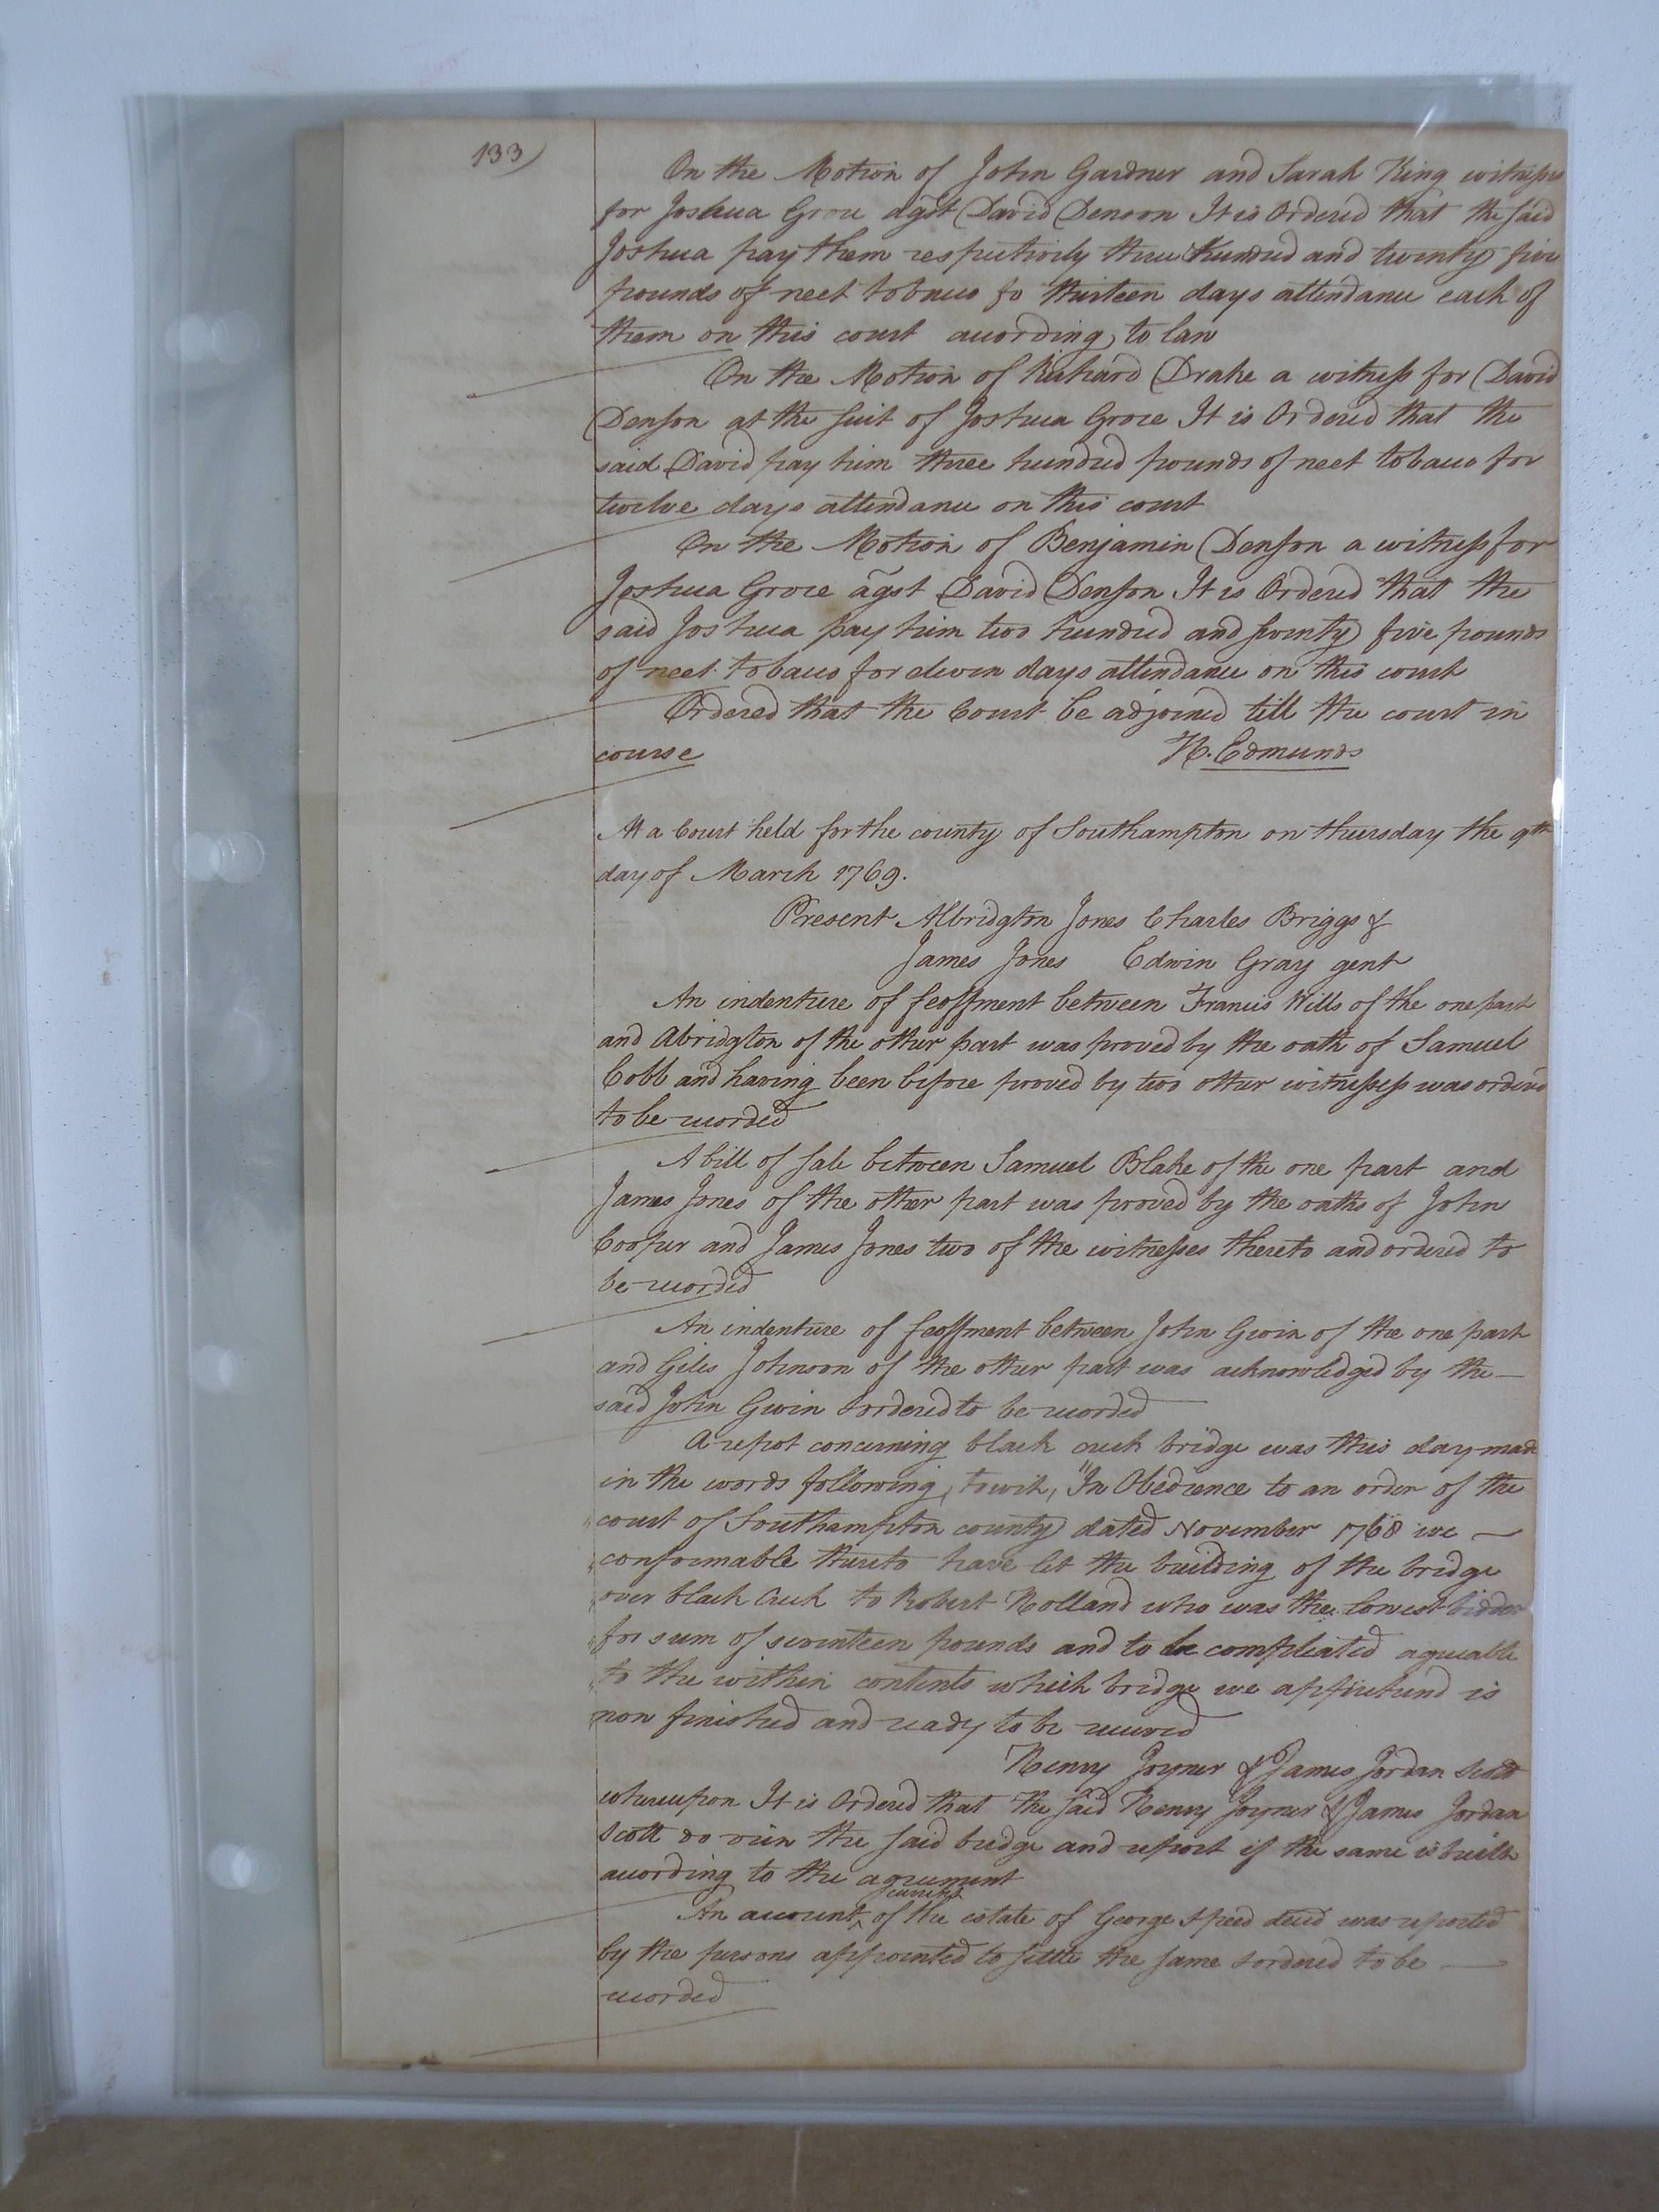 133)
On the Motion of John Gardner and Sarah King witnesses
for Joshua Grove agst David Denson It is Ordered that the said
Joshua pay them respectively three hundred and twenty five
pounds of neet tobacco fo thirteen days attendance each of
them on this court according to law
On the Motion of Richard Drake a witness for David
Denson at the suit of Joshua Grove It is Ordered that the
said David pay him three hundred pounds of neet tobacco for
twelve days attendance on this court
On the Motion of Benjamin Denson a witness for
Joshua Grove agst David Denson It is Ordered that the
said Joshua pay him two hundred and seventy five pounds
of neet tobacco for eleven days attendance on this court
Ordered that the Court be adjorned till the court in
course H. Edmunds
At a Court held for the county of Southampton on thursday the 9th
day of March 1769.
Present Albridgton Jones Charles Briggs &
James Jones Edwin Gray gent
An indenture of feoffment between Francis Wills of the one part
and Abridgton of the other part was proved by the oath of Samuel
Cobb and having been before proved by two other witnesses was ordered
to be recorded
A bill of sale between Samuel Blake of the one part and
James Jones of the other part was proved by the oaths of John
Cooper and James Jones two of the witnesses thereto and ordered to
be recorded
An indenture of feoffment between John Gwin of the one part
and Giles Johnson of the other part was acknowledged by the
said John Gwin & ordered to be recorded
A repot concerning black creek bridge was this day made
in the words following, towit, "In Obedience to an order of the
court of Southampton county dated November 1768 we
conformable thereto have let the building of the bridge
over black Creek to Robert Holland who was the lowest bidder
for sum of seventeen pounds and to be compleated agreeable
to the within contents which bridge we apprehend is
now finished and ready to be received
Henry Joyner & James Jordan Scott
whereupon It is Ordered that the said Henry Joyner & James Jordan
Scott do view the said bridge and report if the same is built
according to the agreement
current
An account of the estate of George Speed decd was reported
by the persons appointed to settle the same & ordered to be
recorded